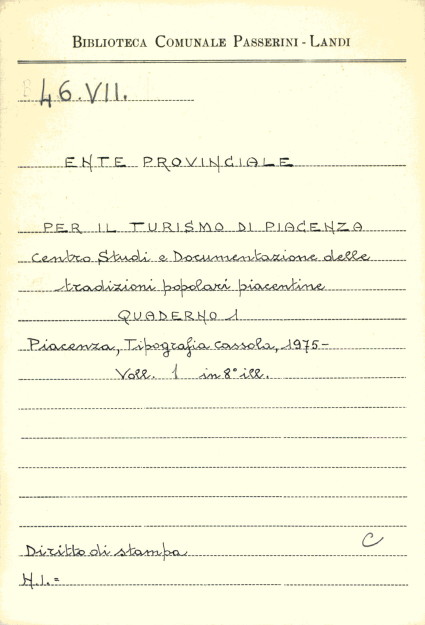 BIBLIOTECA COMUNALE PASSERINI - LANDI
46.VII.
ENTE PROVINCIALE
PER IL TURISMO DI PIACENZA
Centro Studi e Documentazione delle
tradizioni popolari piacentine
QUADERNO 1
Piacenza, Tipografia Cassola, 1975-
Voll. 1 in 8° ill.
C
Diritto di stampa
N.I.=